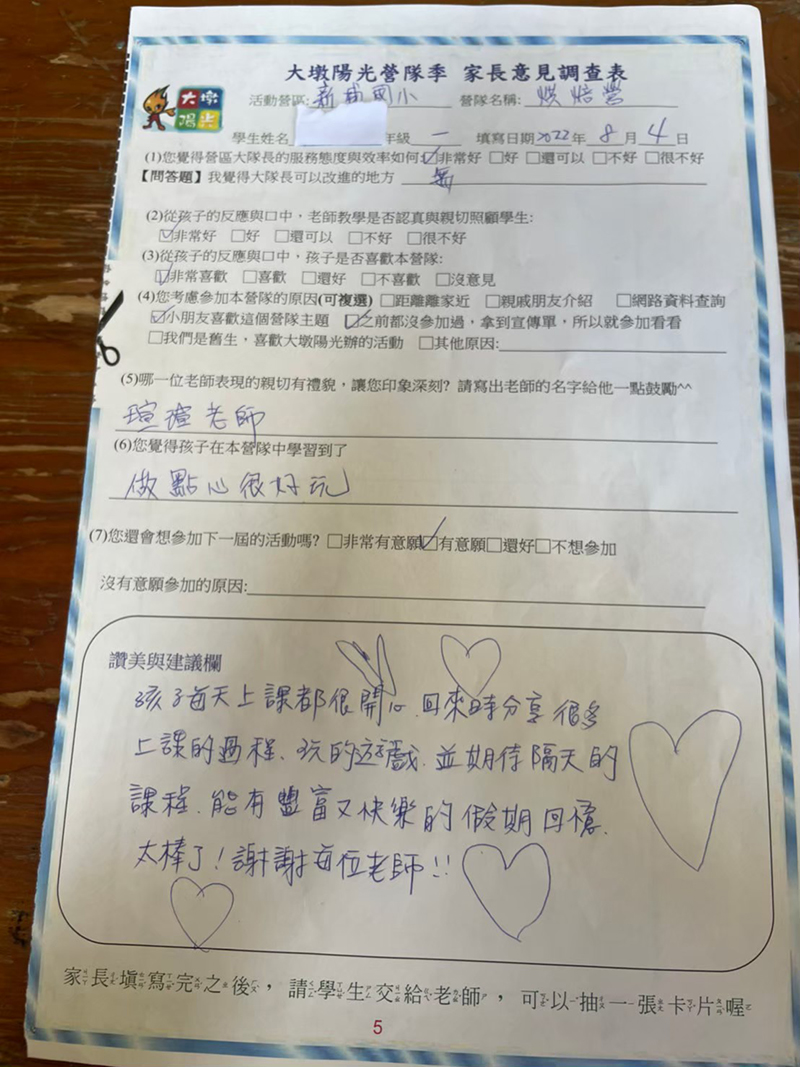 大墩陽光營隊季 家長意見調查表
大墩
陽光
活動營區: 新埔國小 營隊名稱: 烘焙營
學生姓名 年級 一 填寫日期 2022 年 8 月 4 日
(1)您覺得營區大隊長的服務態度與效率如何:☑非常好 □好 □還可以 □不好 □很不好
【問答題】我覺得大隊長可以改進的地方 無
(2)從孩子的反應與口中,老師教學是否認真與親切照顧學生:
☑非常好 □好 □還可以 □不好 □很不好
(3)從孩子的反應與口中,孩子是否喜歡本營隊:
☑非常喜歡 □喜歡 □還好 □不喜歡 □沒意見
(4)您考慮參加本營隊的原因(可複選) □距離離家近 □親戚朋友介紹 □網路資料查詢
☑小朋友喜歡這個營隊主題 ☑之前都沒參加過,拿到宣傳單,所以就參加看看
□我們是舊生,喜歡大墩陽光辦的活動 □其他原因:
(5)哪一位老師表現的親切有禮貌,讓您印象深刻? 請寫出老師的名字給他一點鼓勵^^
瑄瑄老師
(6)您覺得孩子在本營隊中學習到了
做點心很好玩
(7)您還會想參加下一屆的活動嗎? □非常有意願☑有意願□還好□不想參加
沒有意願參加的原因:
讚美與建議欄
孩子每天上課都很開心.回來時分享很多
上課的過程、玩的遊戲.並期待隔天的
課程.能有豐富又快樂的假期回憶.
太棒了!謝謝每位老師!!
家長填寫完之後,請學生交給老師,可以抽一張卡片喔
5